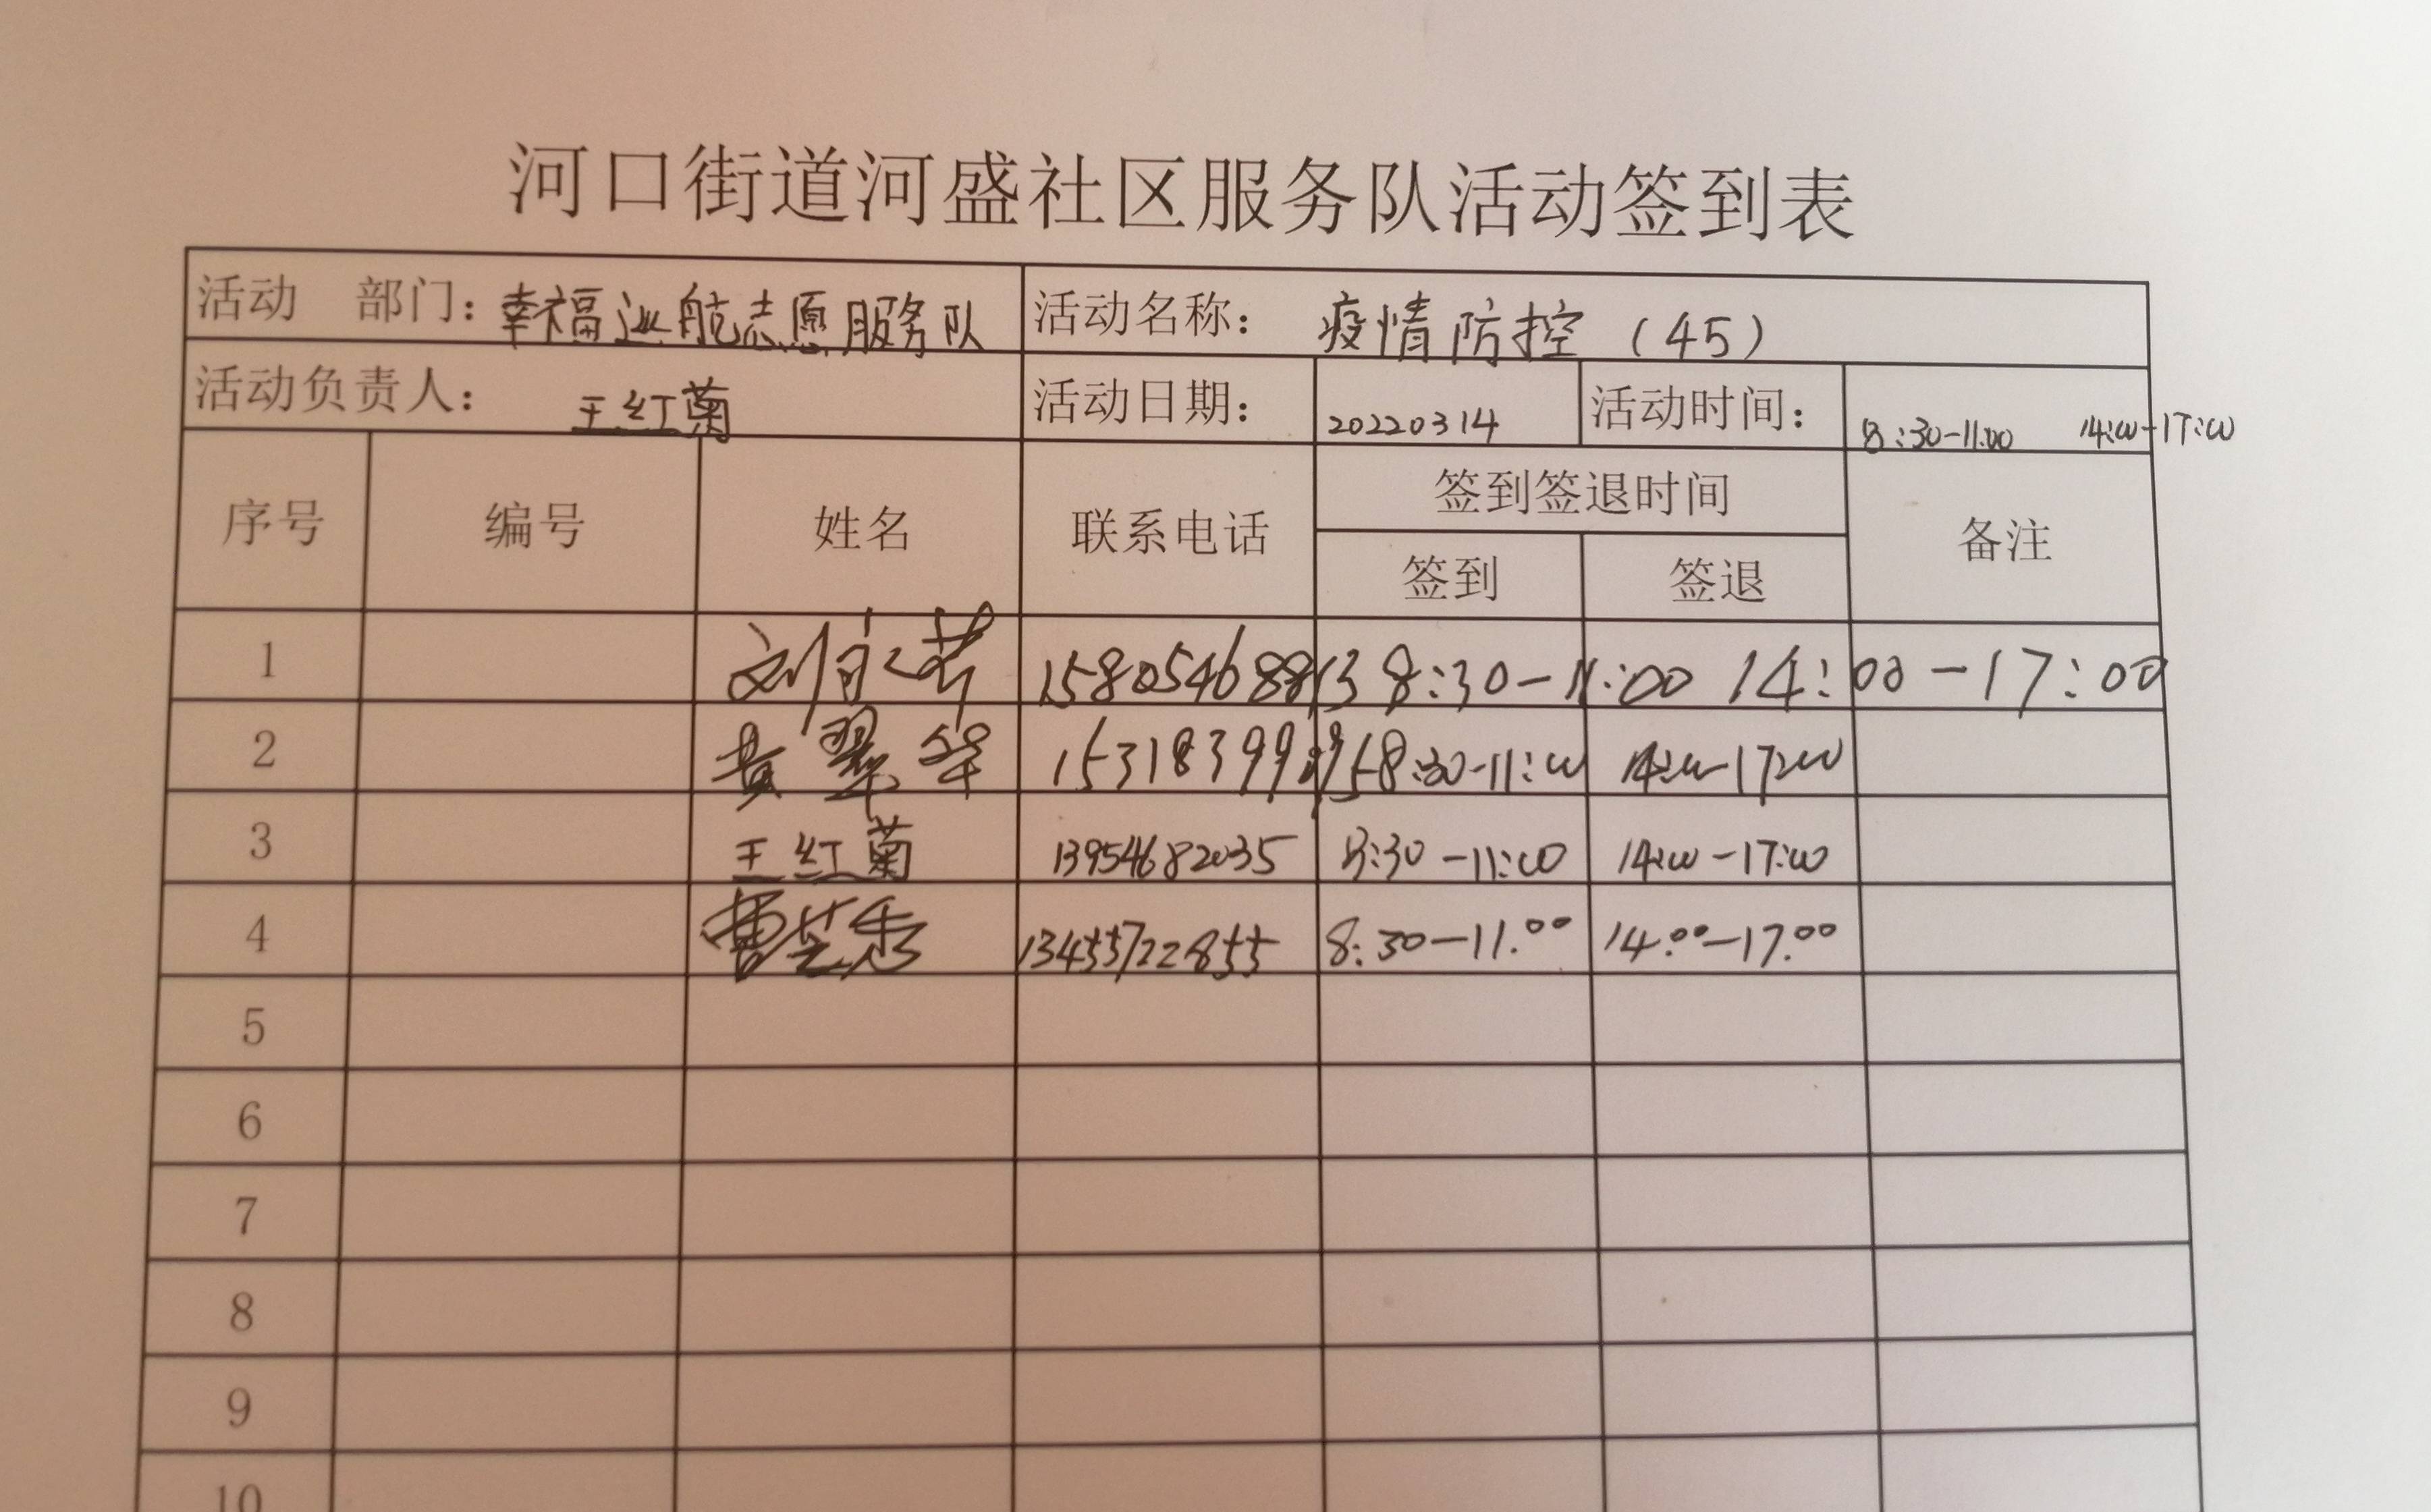 河口街道河盛社区服务队活动签到表
活动 部门：幸福巡航志愿服务队 活动名称： 疫情防控（45）
活动负责人： 王红菊 活动日期： 20220314 活动时间： 8:30-11:00 14:00-17:00
序号 编号 姓名 联系电话 签到签退时间 备注
签到 签退
1 刘永芹 15805468813 8:30-11:00 14:00-17:00
2 黄翠华 8:30-11:00 14:00-17:00
3 王红菊 13954682035 8:30-11:00 14:00-17:00
4 曹芝秀 13455722855 8:30-11.00 14.00-17.00
5
6
7
8
9
10